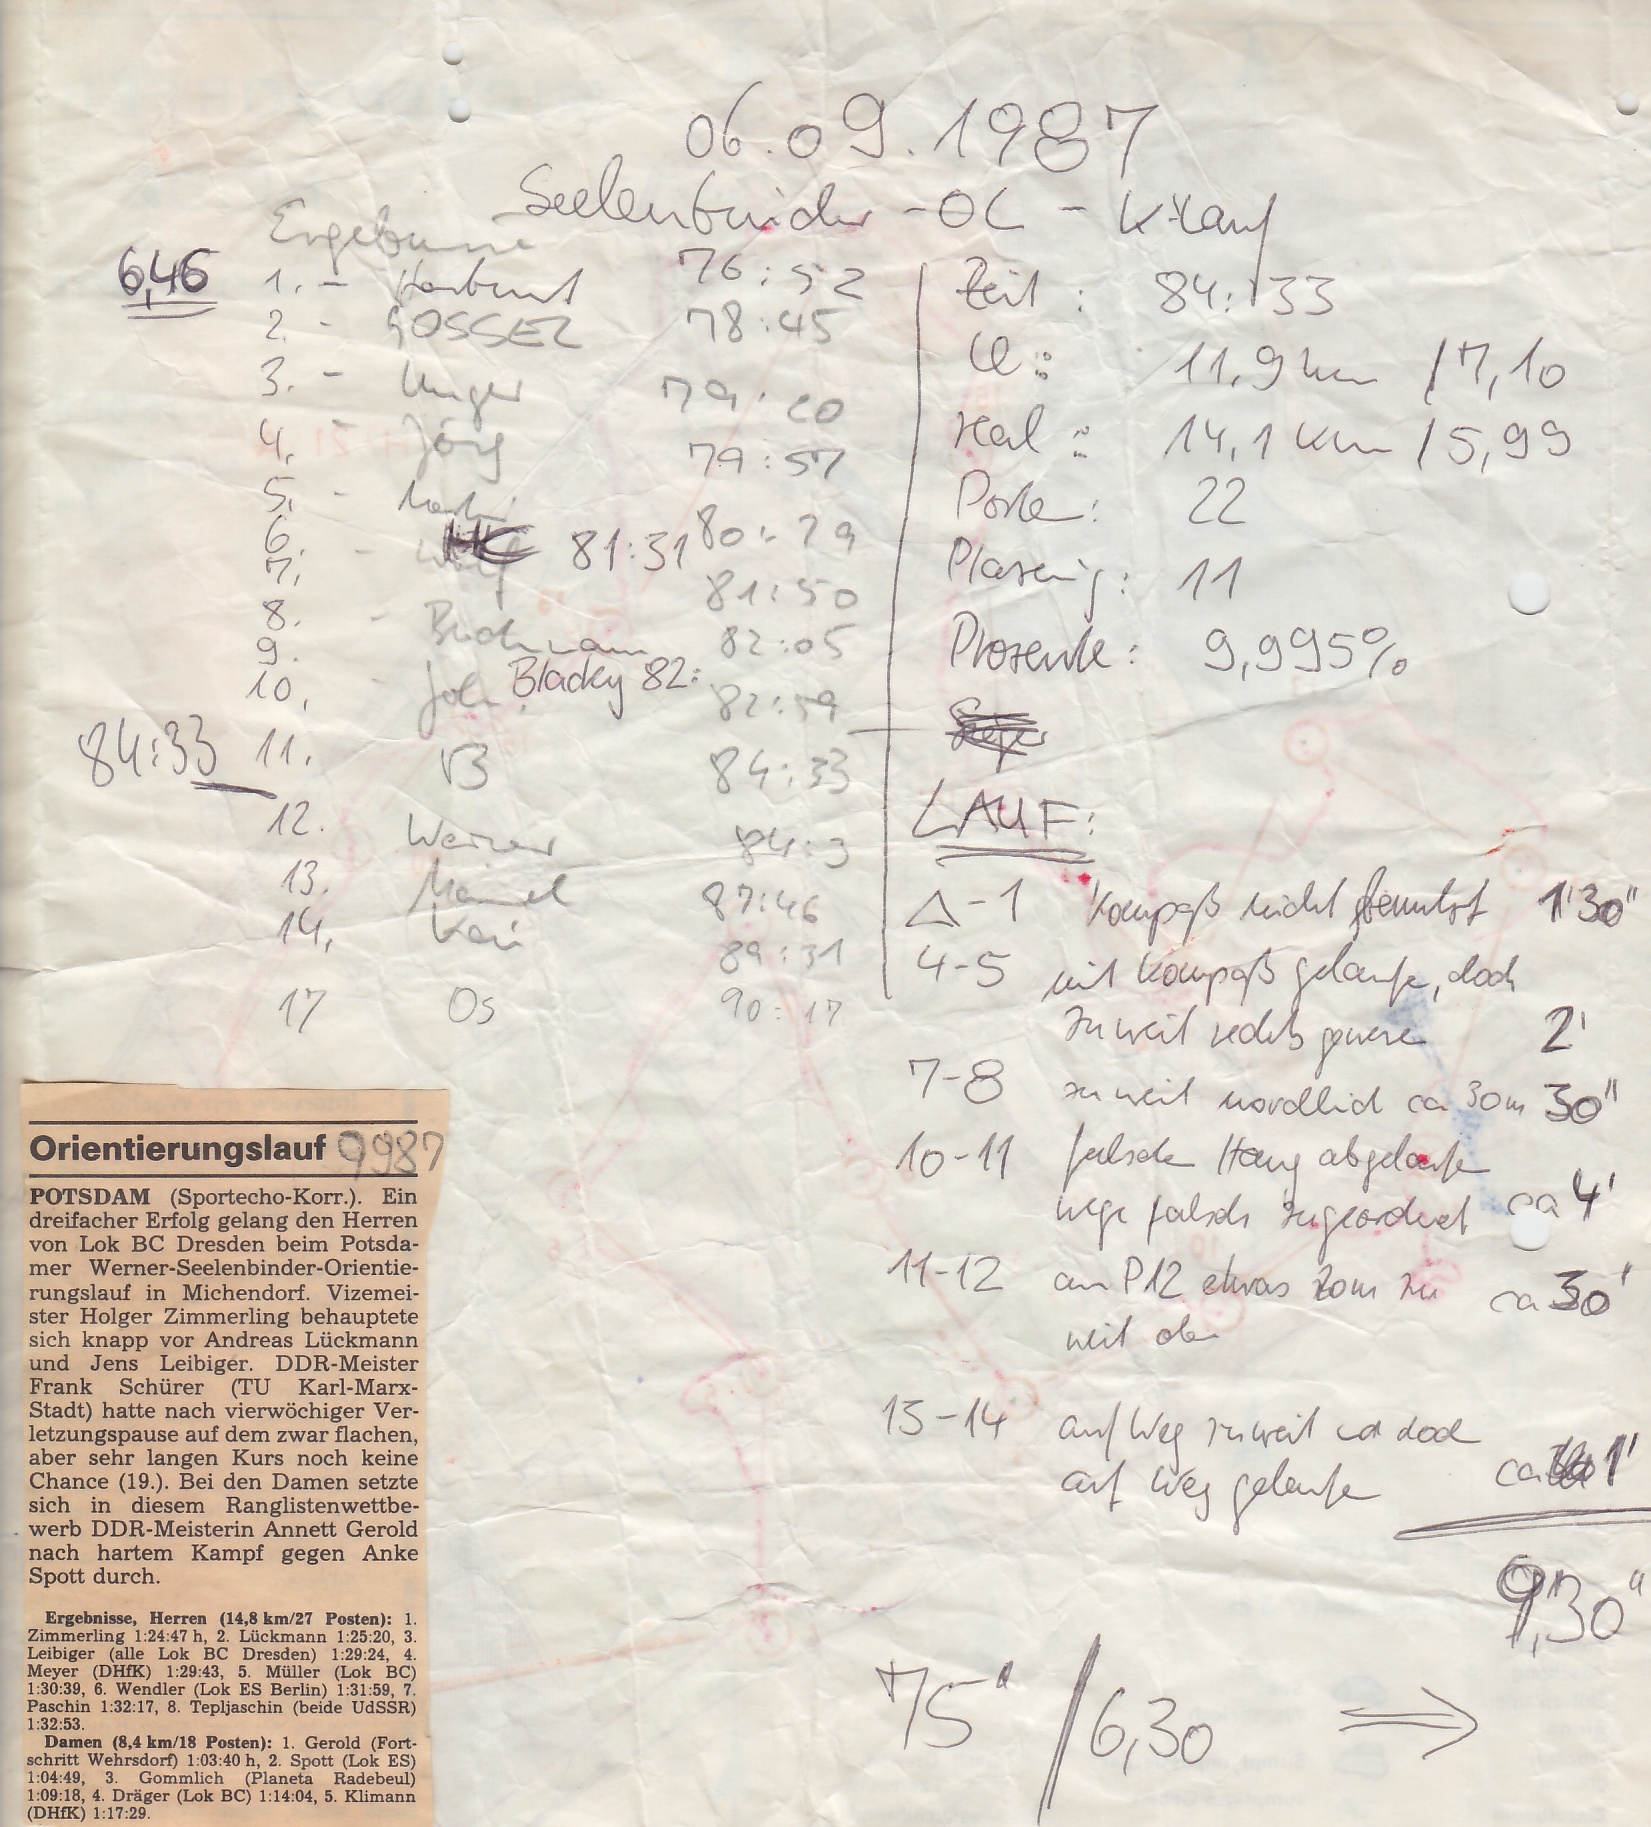 06.09.1987
Seelenbinder - OL - K-Lauf
Ergebnisse
6,46
1. - 76:52
2. - GOSSEL 78:45
3. - Unger 79:20
4. - Jörg 79:57
5. - 80:29
6. HC 81:31
7. - 81:50
8. - Buchmann 82:05
9. Blacky 82:
10. - 82:59
84:33 11. VB 84:33
12. Werner 84:3
13. 87:46
14. Kai 89:31
17 Os 90:17
Zeit: 84:33
LL: 11,9 km /7,10
real: 14,1 km /5,99
Posten: 22
Plazierung: 11
Prozente: 9,995%
LAUF:
△-1 Kompaß nicht benutzt 1'30"
4-5 mit Kompaß gelaufen, doch
zu weit rechts gewesen 2'
7-8 zu weit nördlich ca 30m 30"
10-11 falschen Hang abgelaufen
Wege falsch zugeordnet ca 4'
11-12 am P12 etwas zu ca 30'
weit oben
13-14 auf Weg zu weit doch
auf Weg gelaufen ca 1'
9,30"
75" / 6,30 ⇒
Orientierungslauf 9987
POTSDAM (Sportecho-Korr.). Ein
dreifacher Erfolg gelang den Herren
von Lok BC Dresden beim Potsda-
mer Werner-Seelenbinder-Orientie-
rungslauf in Michendorf. Vizemei-
ster Holger Zimmerling behauptete
sich knapp vor Andreas Lückmann
und Jens Leibiger. DDR-Meister
Frank Schürer (TU Karl-Marx-
Stadt) hatte nach vierwöchiger Ver-
letzungspause auf dem zwar flachen,
aber sehr langen Kurs noch keine
Chance (19.). Bei den Damen setzte
sich in diesem Ranglistenwettbe-
werb DDR-Meisterin Annett Gerold
nach hartem Kampf gegen Anke
Spott durch.
Ergebnisse, Herren (14,8 km/27 Posten): 1.
Zimmerling 1:24:47 h, 2. Lückmann 1:25:20, 3.
Leibiger (alle Lok BC Dresden) 1:29:24, 4.
Meyer (DHfK) 1:29:43, 5. Müller (Lok BC)
1:30:39, 6. Wendler (Lok ES Berlin) 1:31:59, 7.
Paschin 1:32:17, 8. Tepljaschin (beide UdSSR)
1:32:53.
Damen (8,4 km/18 Posten): 1. Gerold (Fort-
schritt Wehrsdorf) 1:03:40 h, 2. Spott (Lok ES)
1:04:49, 3. Gommlich (Planeta Radebeul)
1:09:18, 4. Dräger (Lok BC) 1:14:04, 5. Klimann
(DHfK) 1:17:29.